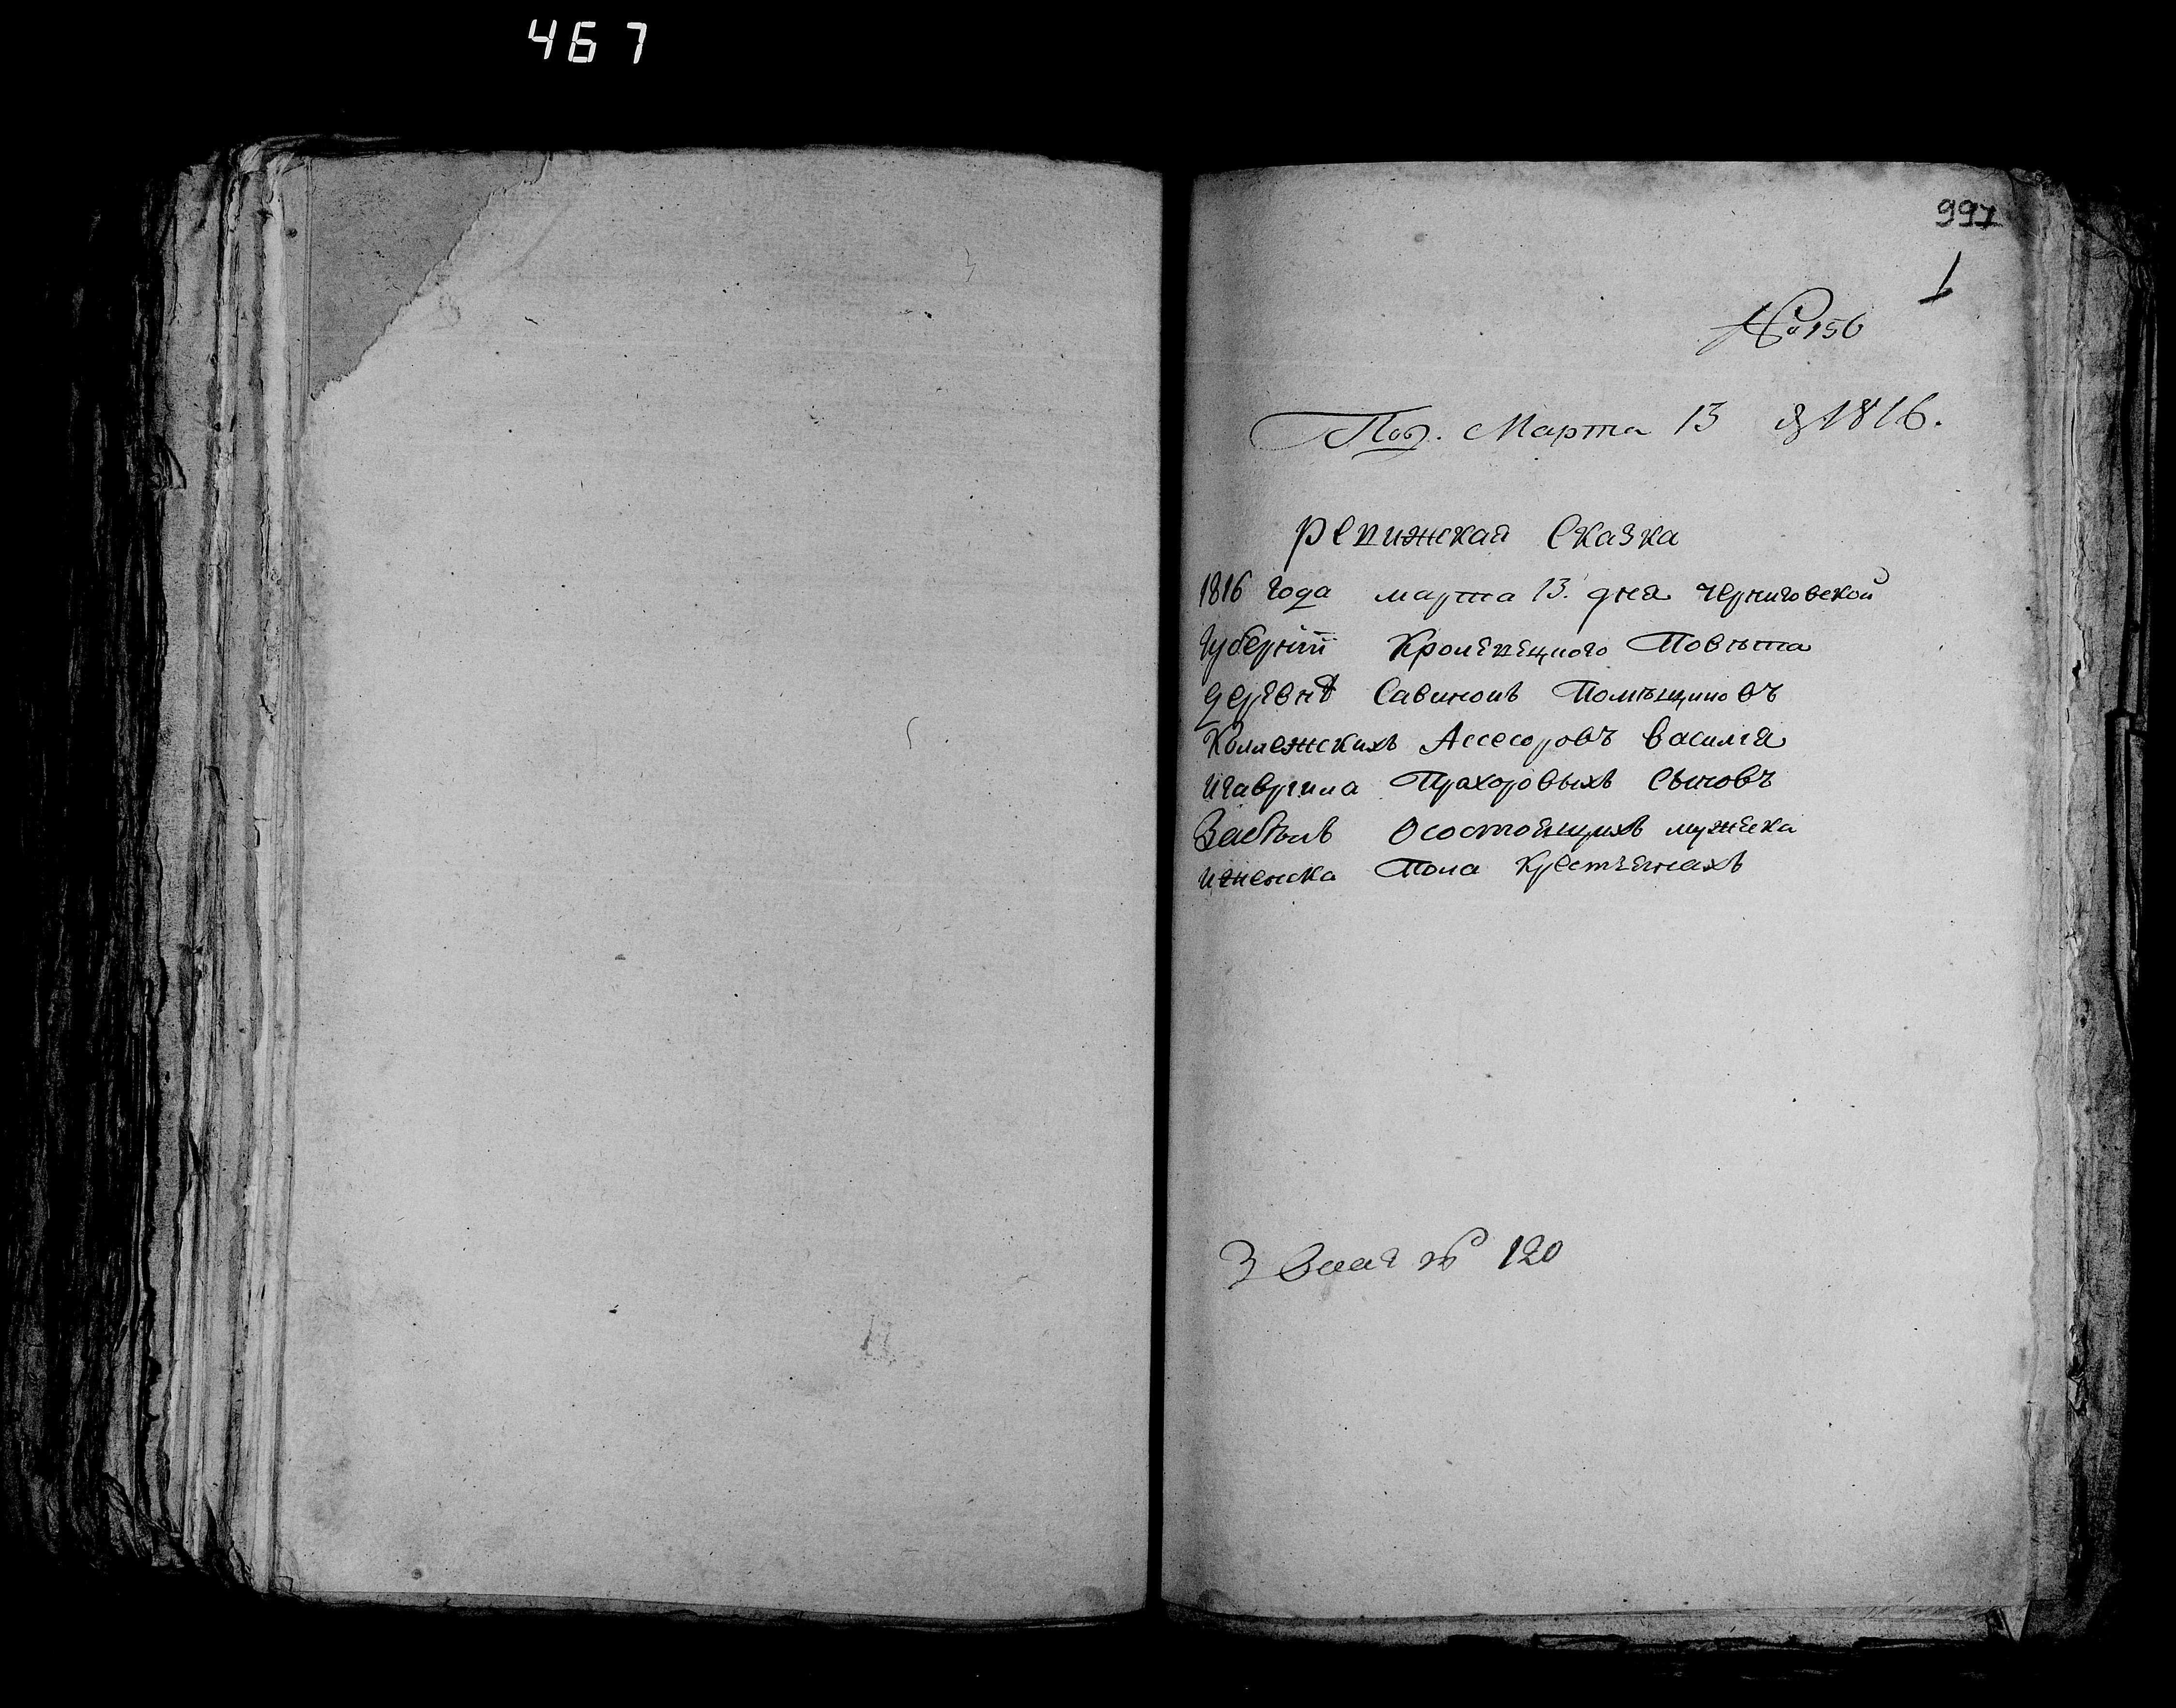 467
997
1
№ 156
Под. Марта 13 д 1816.
Ревижская Сказка
1816 года марта 13. дня черниговской
Губернїи Кролевецкого Повѣта
деревнѣ Савинокъ Помѣщиковъ
Колежскихъ Ассесоровъ василия
игаврила Прахоровыхъ Сыновъ
Забѣлъ Осостоящихъ мужеска
иженска Пола Крестьянахъ
№ 120